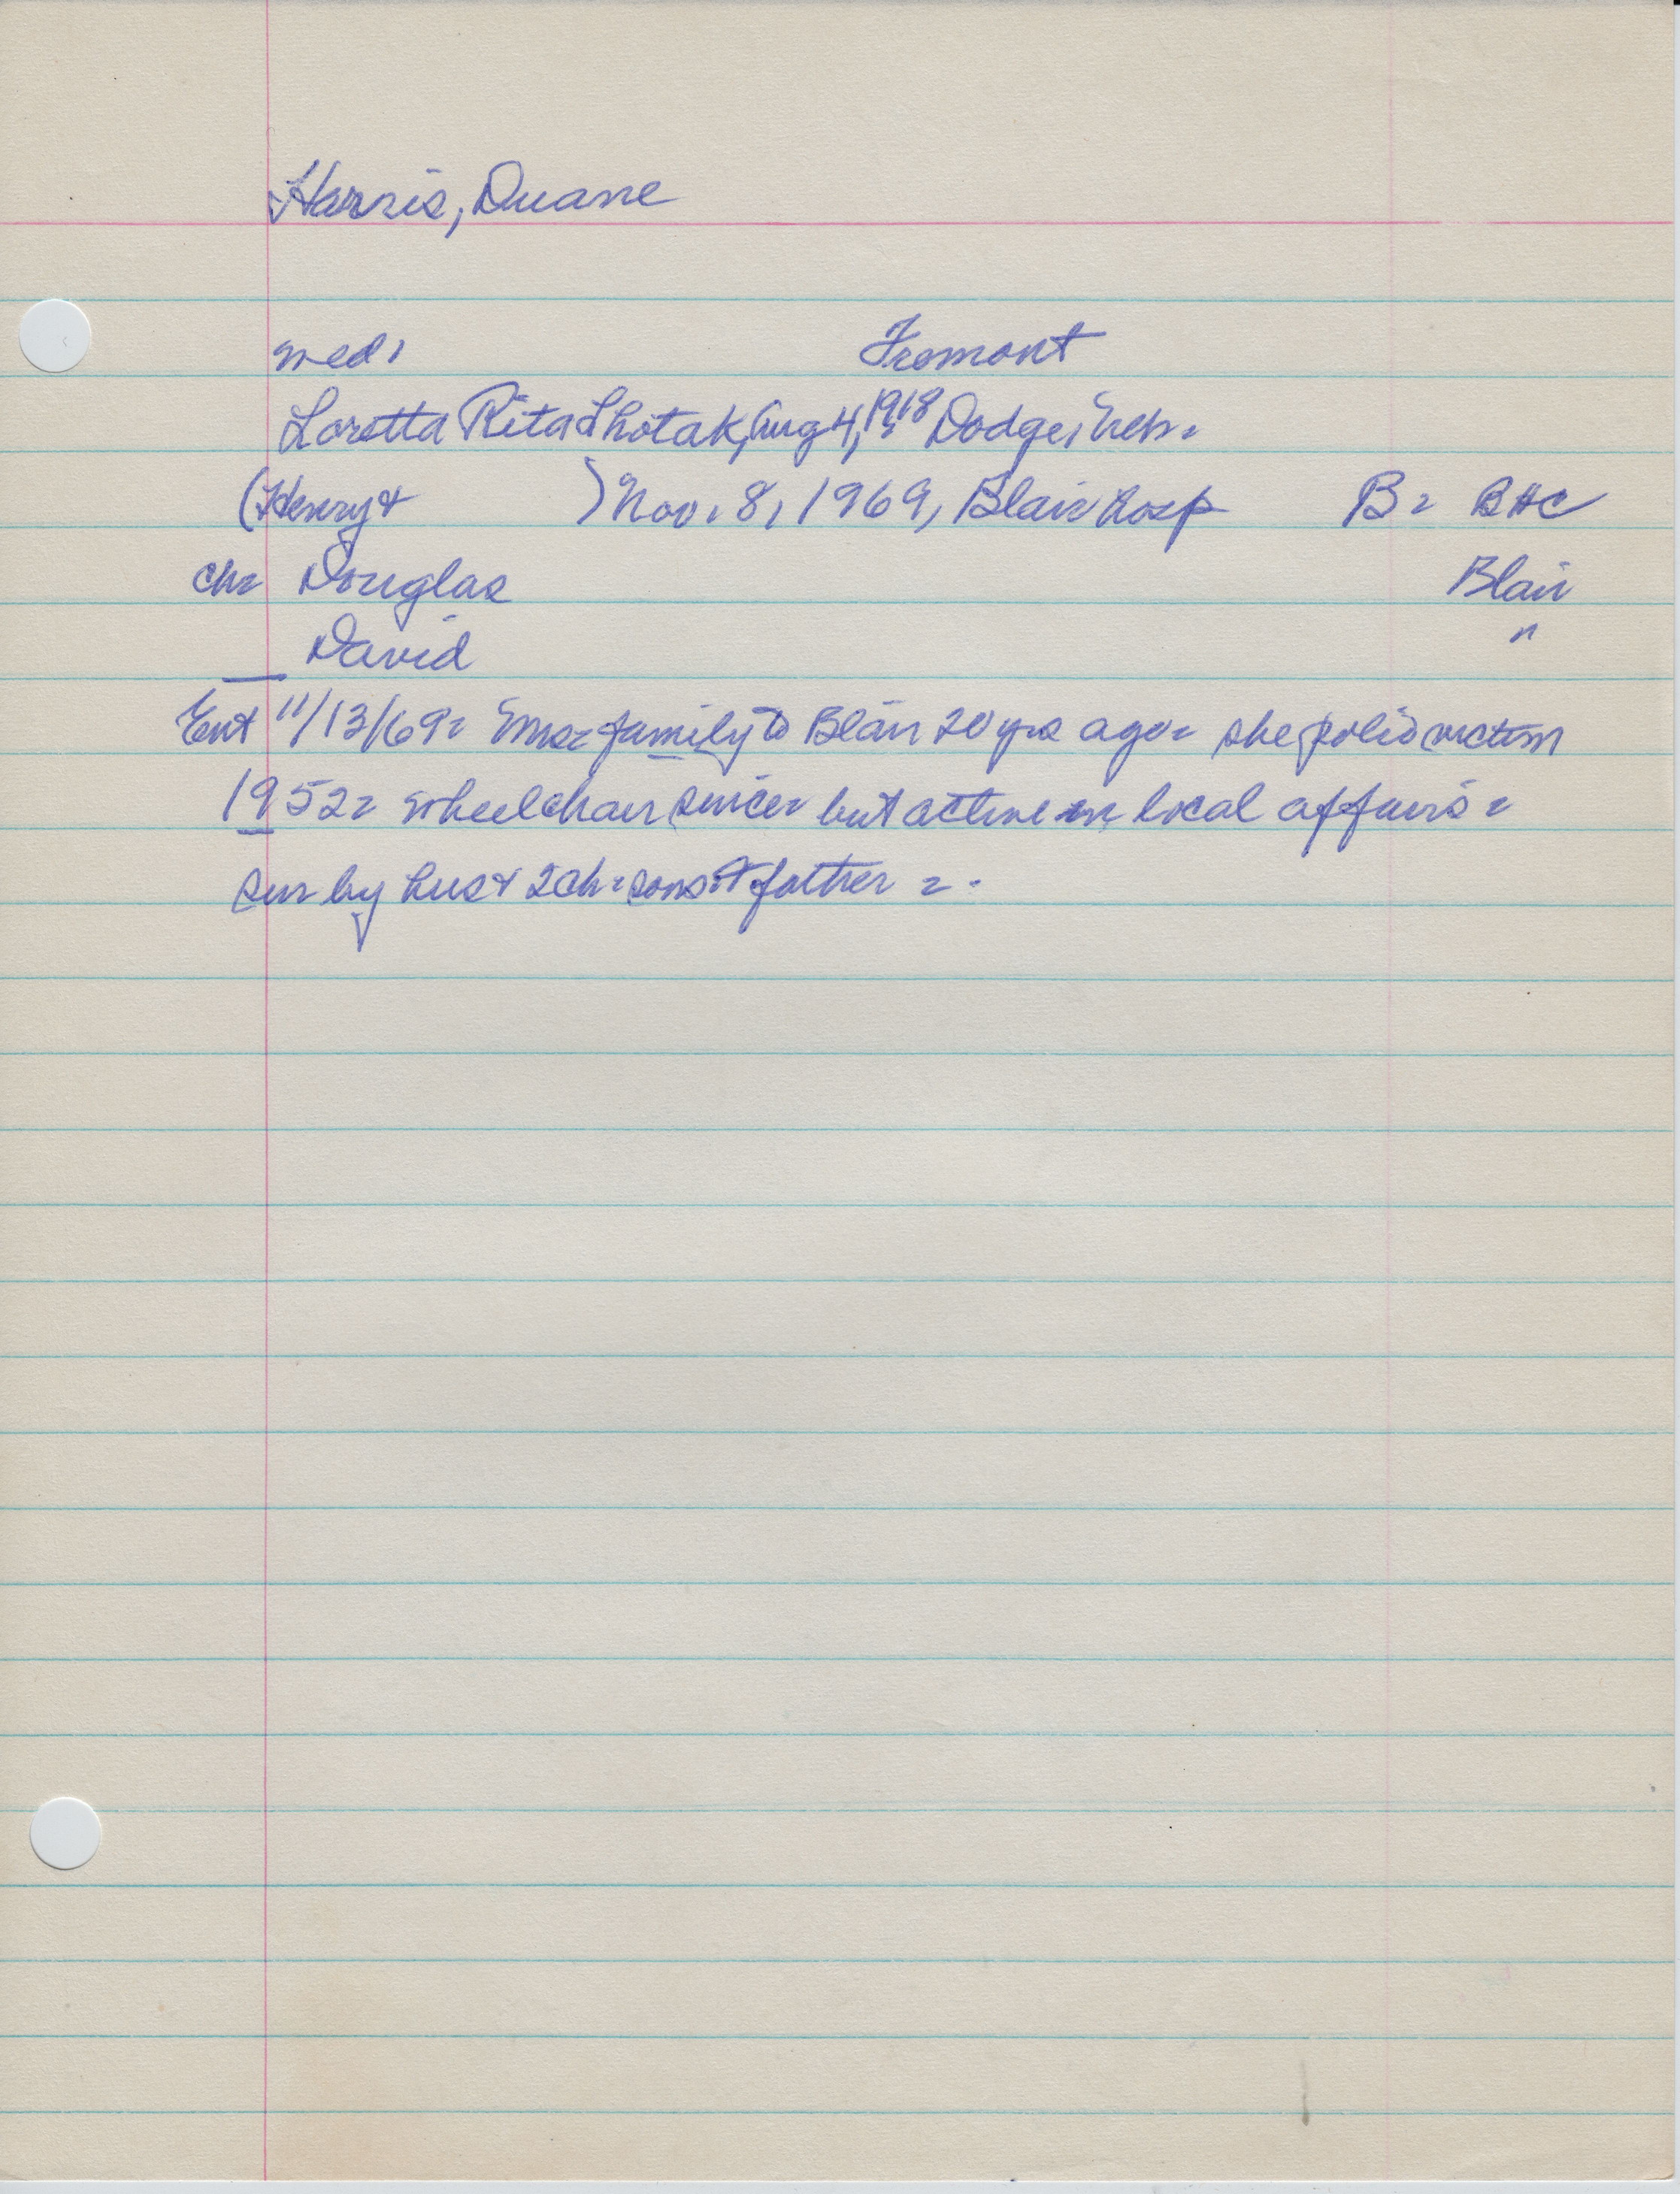 Harris, Duane
med, Fremont
Loretta Rita Lhotak, Aug 4, 1918 Dodge, Neb.
(Henry & ) Nov. 8, 1969, Blair hosp B= BHC
ch= Douglas Blair
David "
Ent 11/13/69= family to Blair 20 yrs ago= she polio victim
1952= wheelchair since= but active in local affairs=
sur by hus & 2 ch= sons & father =.